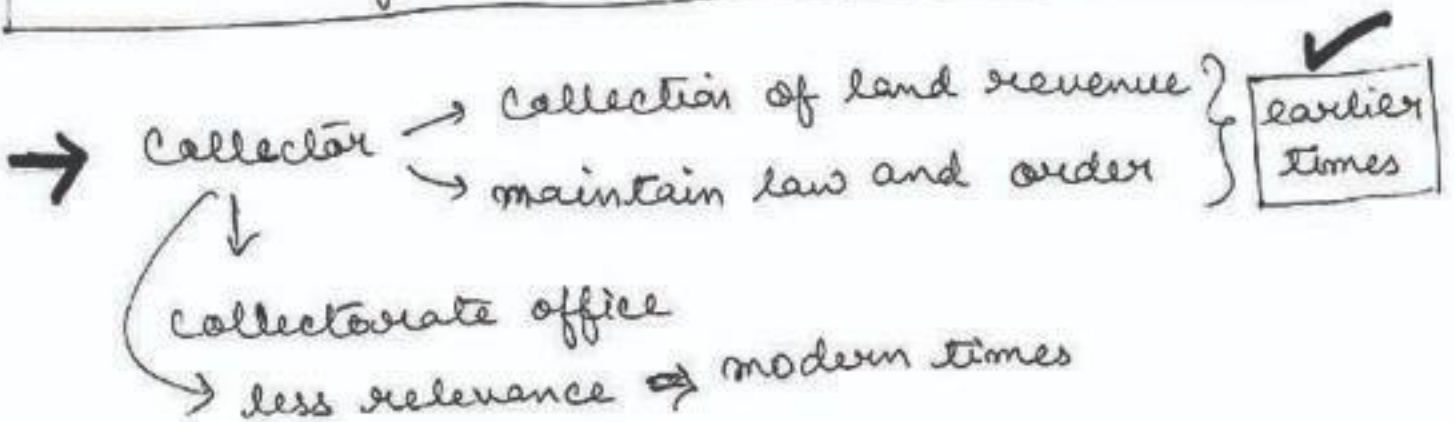 → Collector → collection of land revenue } earlier
→ maintain law and order } times
↓
collectorate office
→ less relevance ⇒ modern times